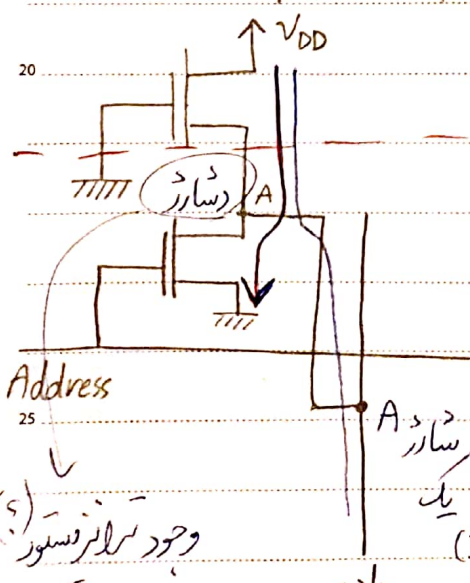 VDD
20
دشارژ
A
Address
25
A
شارژ
یک
(؟)
وجود ترانزیستور